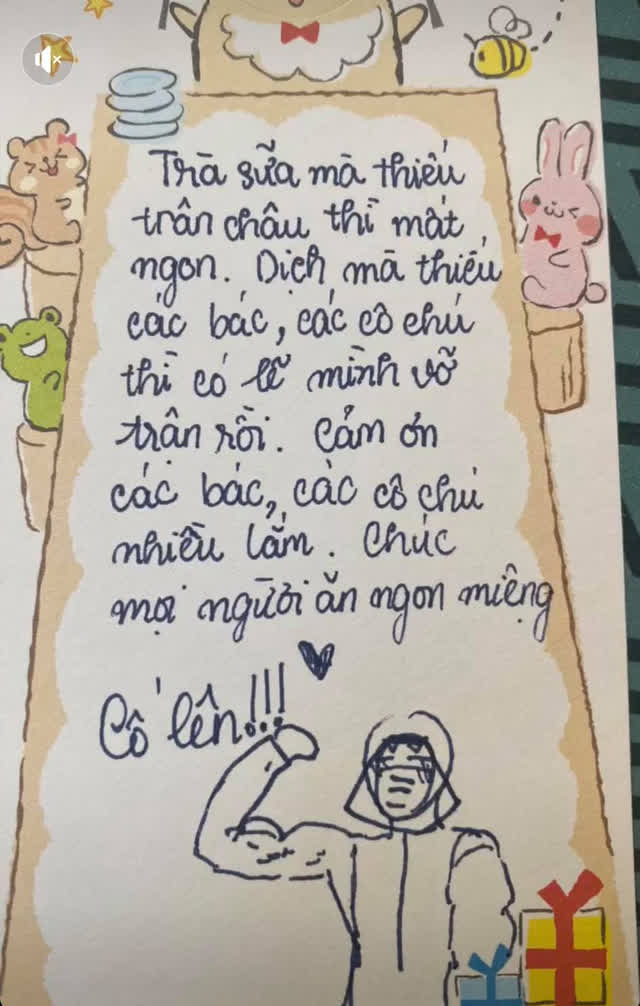 Trà sữa mà thiếu
trân châu thì mất
ngon. Dịch mà thiếu
các bác, các cô chú
thì có lẽ mình vỡ
trận rồi. Cảm ơn
các bác, các cô chú
nhiều lắm. Chúc
mọi người ăn ngon miệng
Cố lên!!!